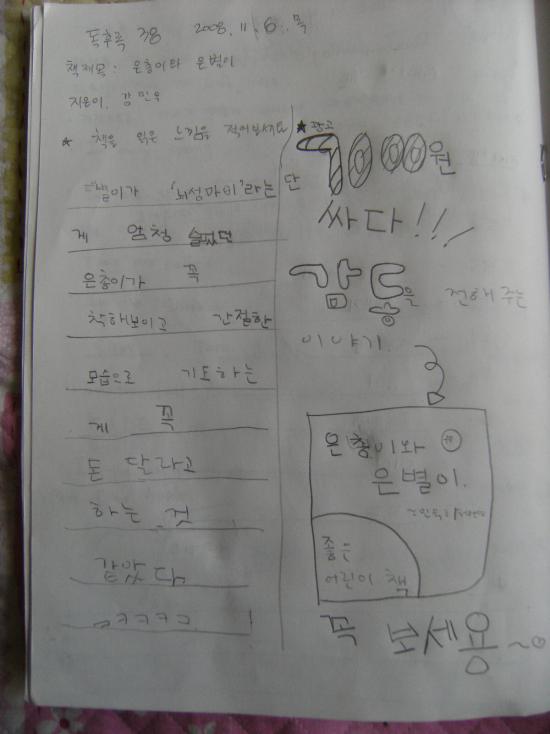 독후록 38 2008. 11. 6. 목
책제목: 은총이와 은별이
지은이. 강민우
★ 책을 읽은 느낌을 적어보세요
은별이가 '뇌성마비'라는 단
게 엄청 슬펐던
은총이가 꼭
착해보이고 간절한
모습으로 기도하는
게 꼭
돈 달라고
하는 것
같았다
ㅋㅋㅋㅋ
★ 광고
9000원
싸다!!!
감동을 전해 주는
이야기.
은총이와
은별이.
좋은
어린이 책
꼭 보세용~